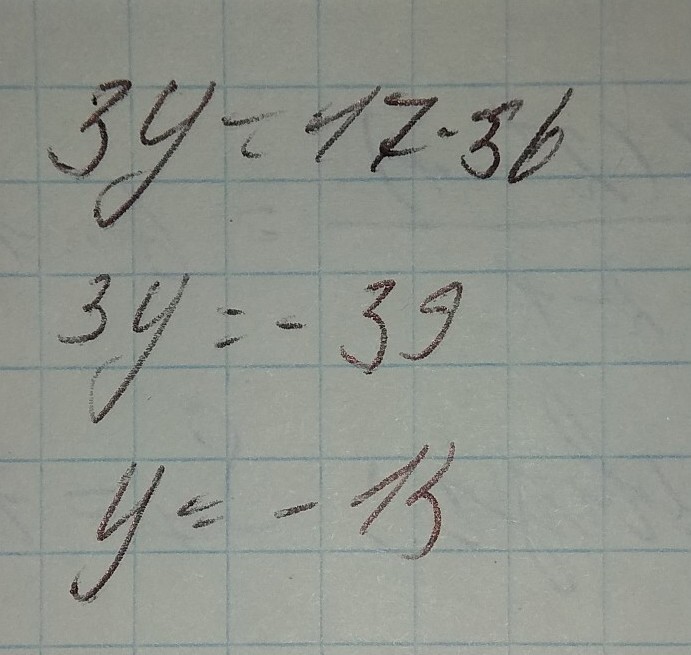 3y = 17 - 56
3y = - 39
y = - 13